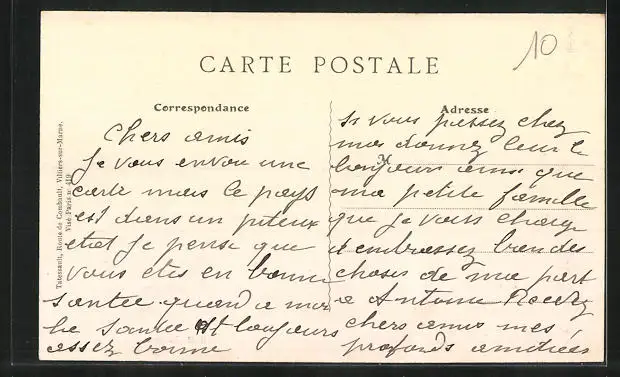 10
CARTE POSTALE
Correspondance
Adresse
Chers amis
je vous envou une
carte mais le pays
est dans un piteux
etat je pense que
vous etes en bonne
santee quand a moi
la santee est toujours
assez bonne
si vous passez chez
moi donnez leur le
bonjour ainsi que
ma petite famille
que je vous charge
d embrassez bon des
choses de ma part
a Antoine
chers amis mes
profonds amitiées
M
Tatessault, Route de Combault, Villiers-sur-Marne.
Visé Paris n°